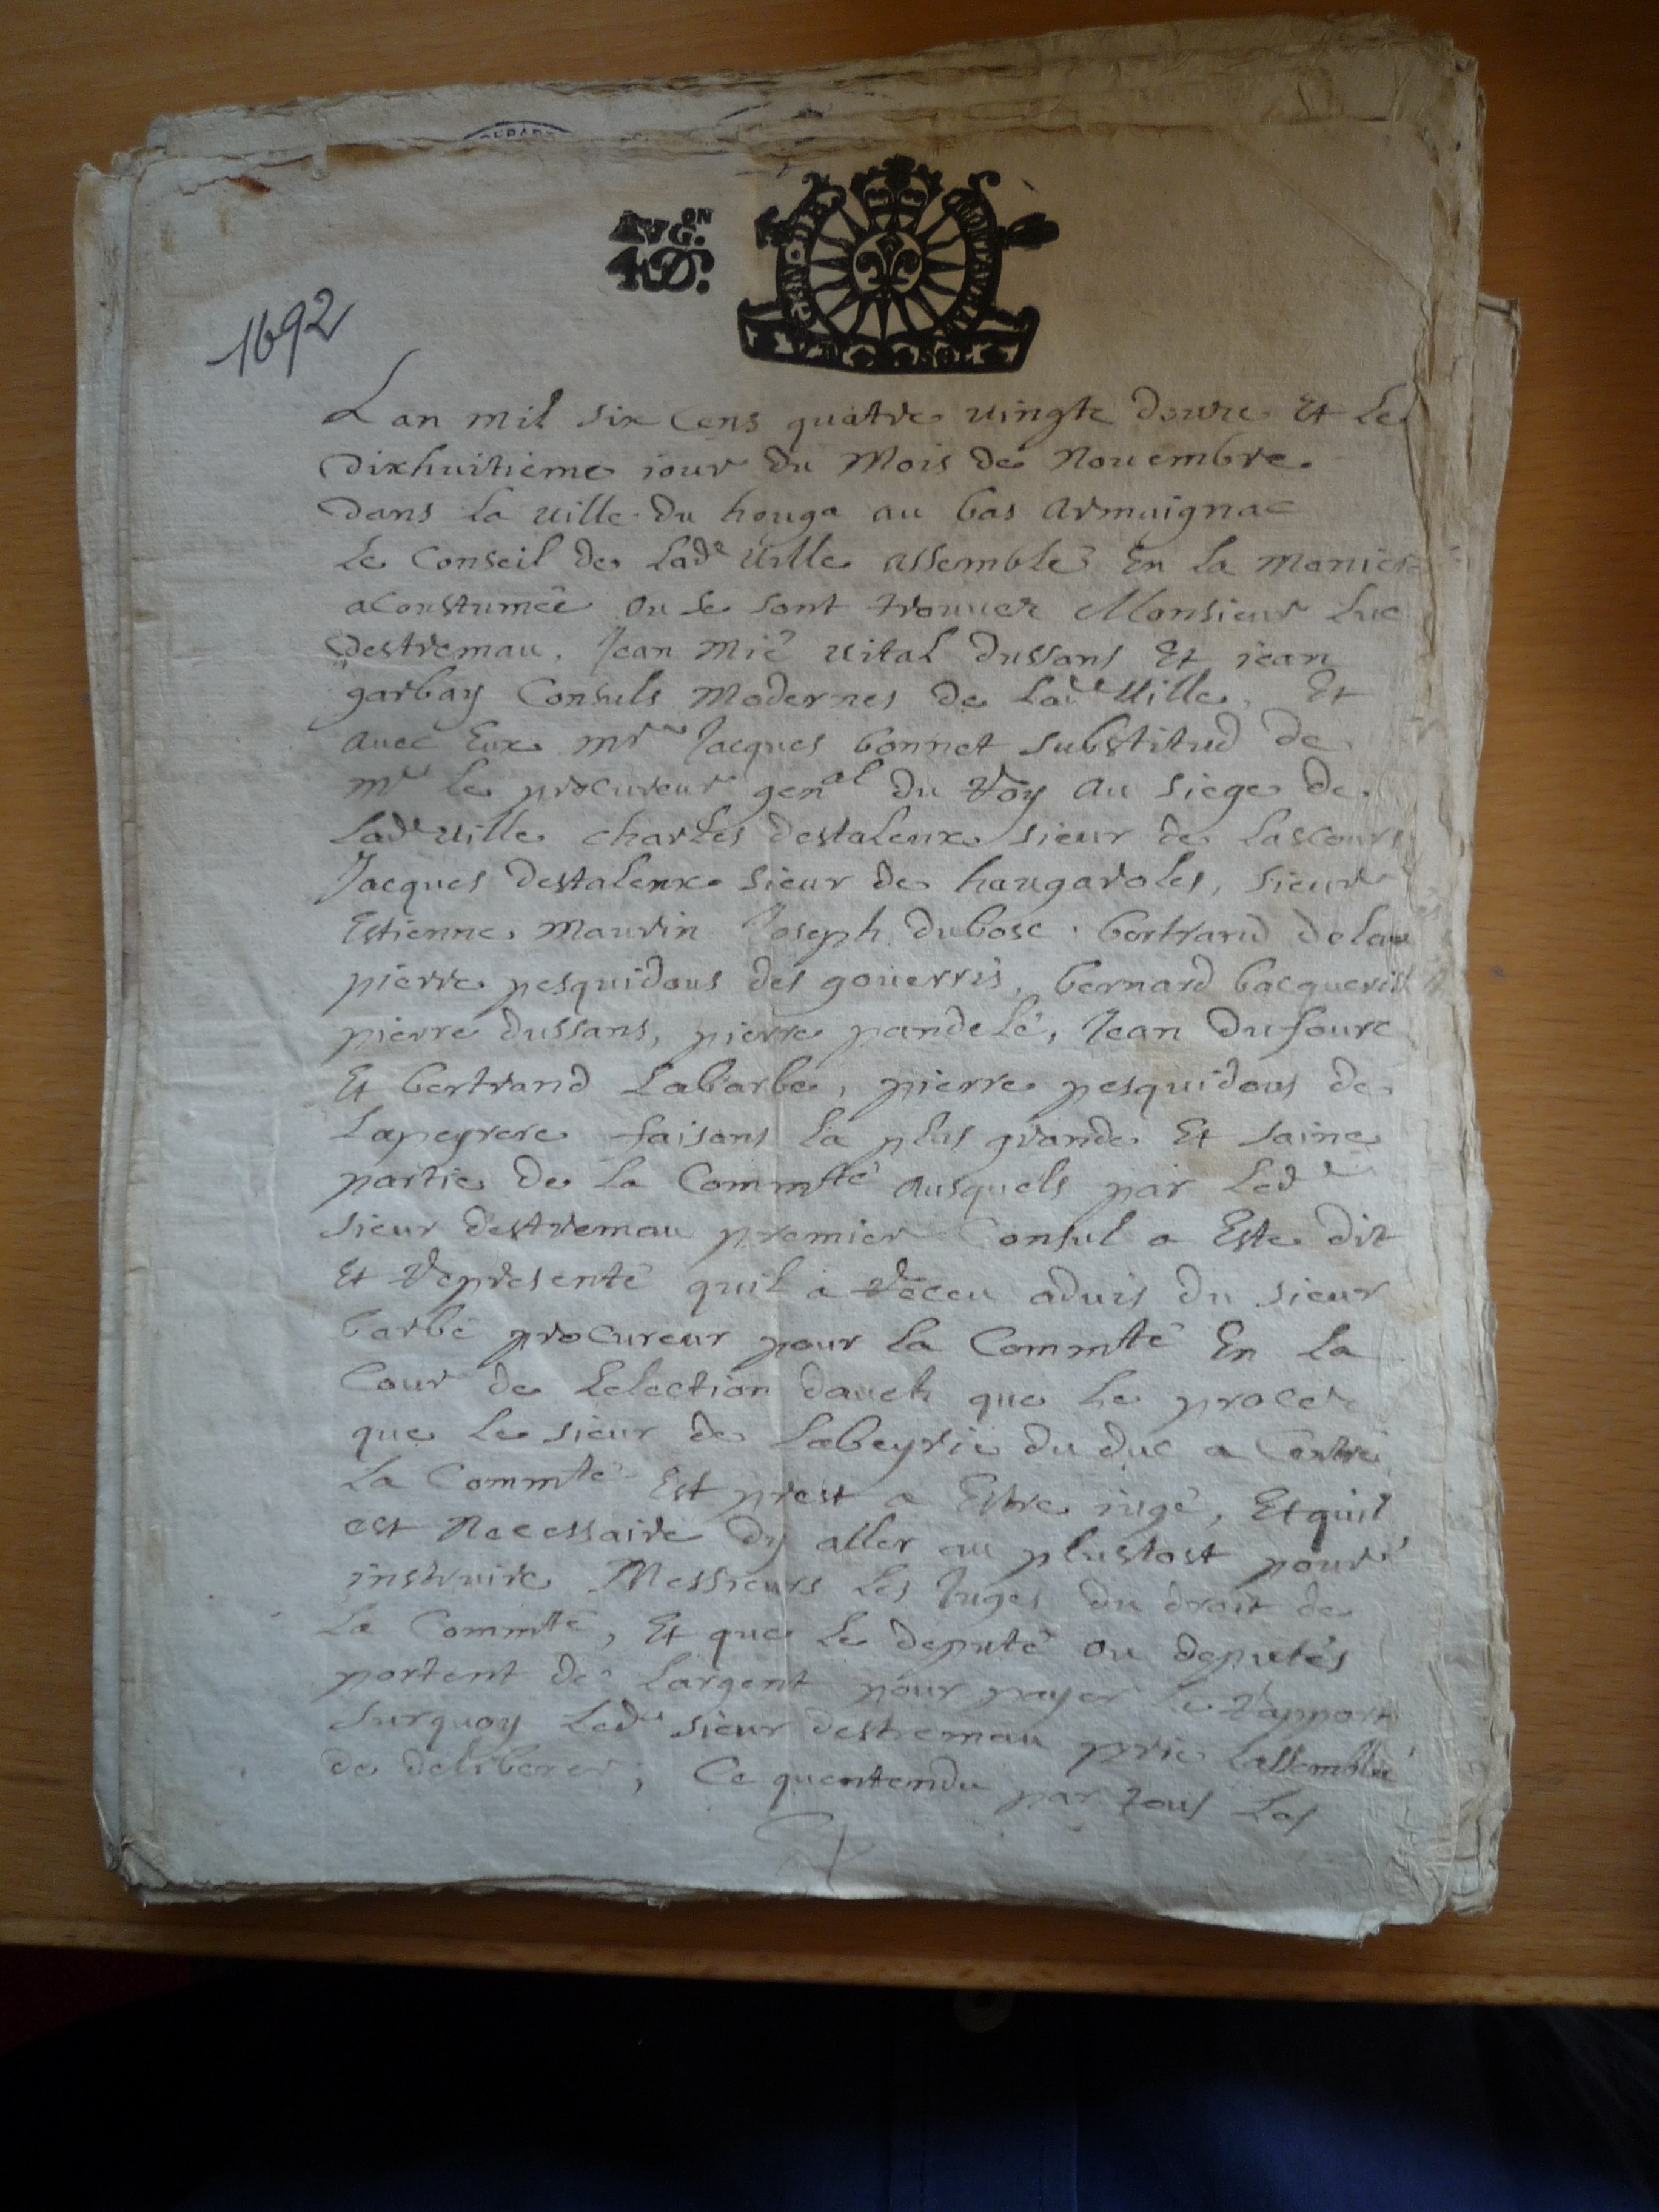 AVG.ON
4D.
GEN. DE MONTAUBAN
SOL
1692
Lan mil six Cens quatre uingtz douze Et le
dixhuitieme iour du Mois de Nouembre
dans la uille du houga au bas armaignac
le Conseil de lade Uille assemblé En la maniere
acoustumée ou se sont trouuez Monsieur luc
destremau, Jean Mié uital dussans Et jean
garbay Consuls Modernes de lade Uille, Et
auec Eux mr Jacques bonnet substitud de
mr le procureur genal du Roy au siege de
lade uille charles destaleux sieur de lascours
Jacques destaleux sieur de haugaroles, sieurs
Estienne Maurin Joseph dubosc bertrand
pierre pesquidous des gouerris, bernard bacquerist
pierre dussans, pierre pandelé, Jean dufourc
Et bertrand Labarbe, pierre pesquidous de
Lapeyrere faisans la plus grande Et saine
partie de la Commté ausquels par led
sieur destremau premier Consul a Este dit
Et Representé quil a Receu aduis du sieur
barbé procureur pour la Commté En la
Cour de Lelection dauch que le procez
que le sieur de Labeyrie du duc a Contre
la Commté Est prest a Estre iugé, Et quil
est Necessaire dy aller au plustost pour
instruire Messieurs les Juges du droit de
la Commté, Et que le deputé ou deputés
portent de largent pour payer le Rapport
surquoy led sieur destremau prie lassemblée
de deliberer; Ce quentendu par tous les